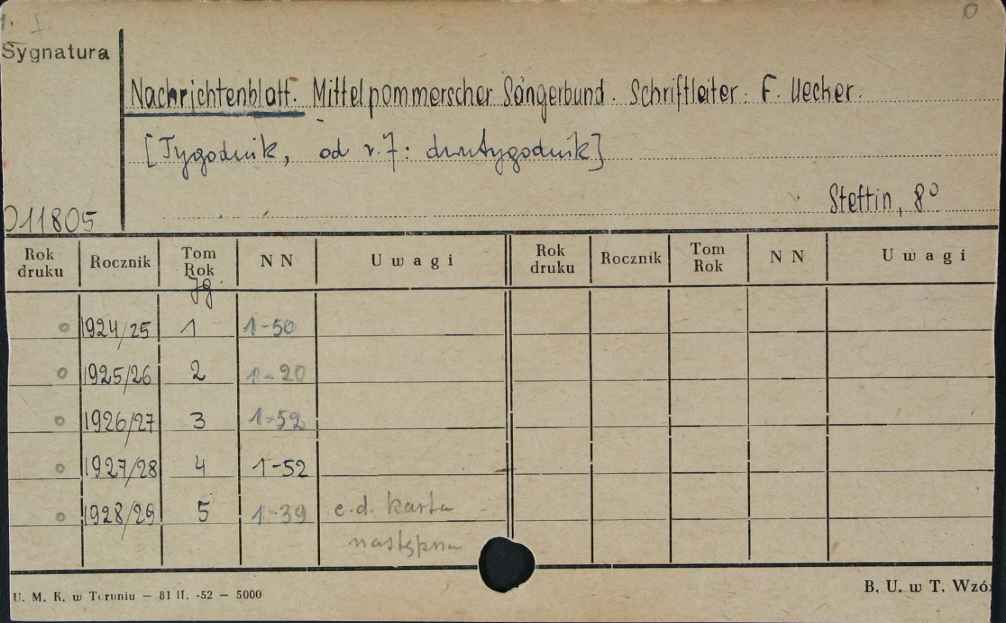 0
Sygnatura
Nachrichtenblatt. Mittelpommerscher Sängerbund. Schriftleiter: F. Uecker.
[Tygodnik, od r. 7: dwutygodnik]
Stettin, 8°
011805
Rok druku Rocznik Tom Rok N N Uwagi Rok druku Rocznik Tom Rok N N Uwagi
Jg.
1924/25 1 1-50
1925/26 2 1-20
1926/27 3 1-52
1927/28 4 1-52
1928/29 5 1-39 c.d. karta
następna
U. M. K. w Toruniu — 81 II. -52 — 5000
B. U. w T. Wzó